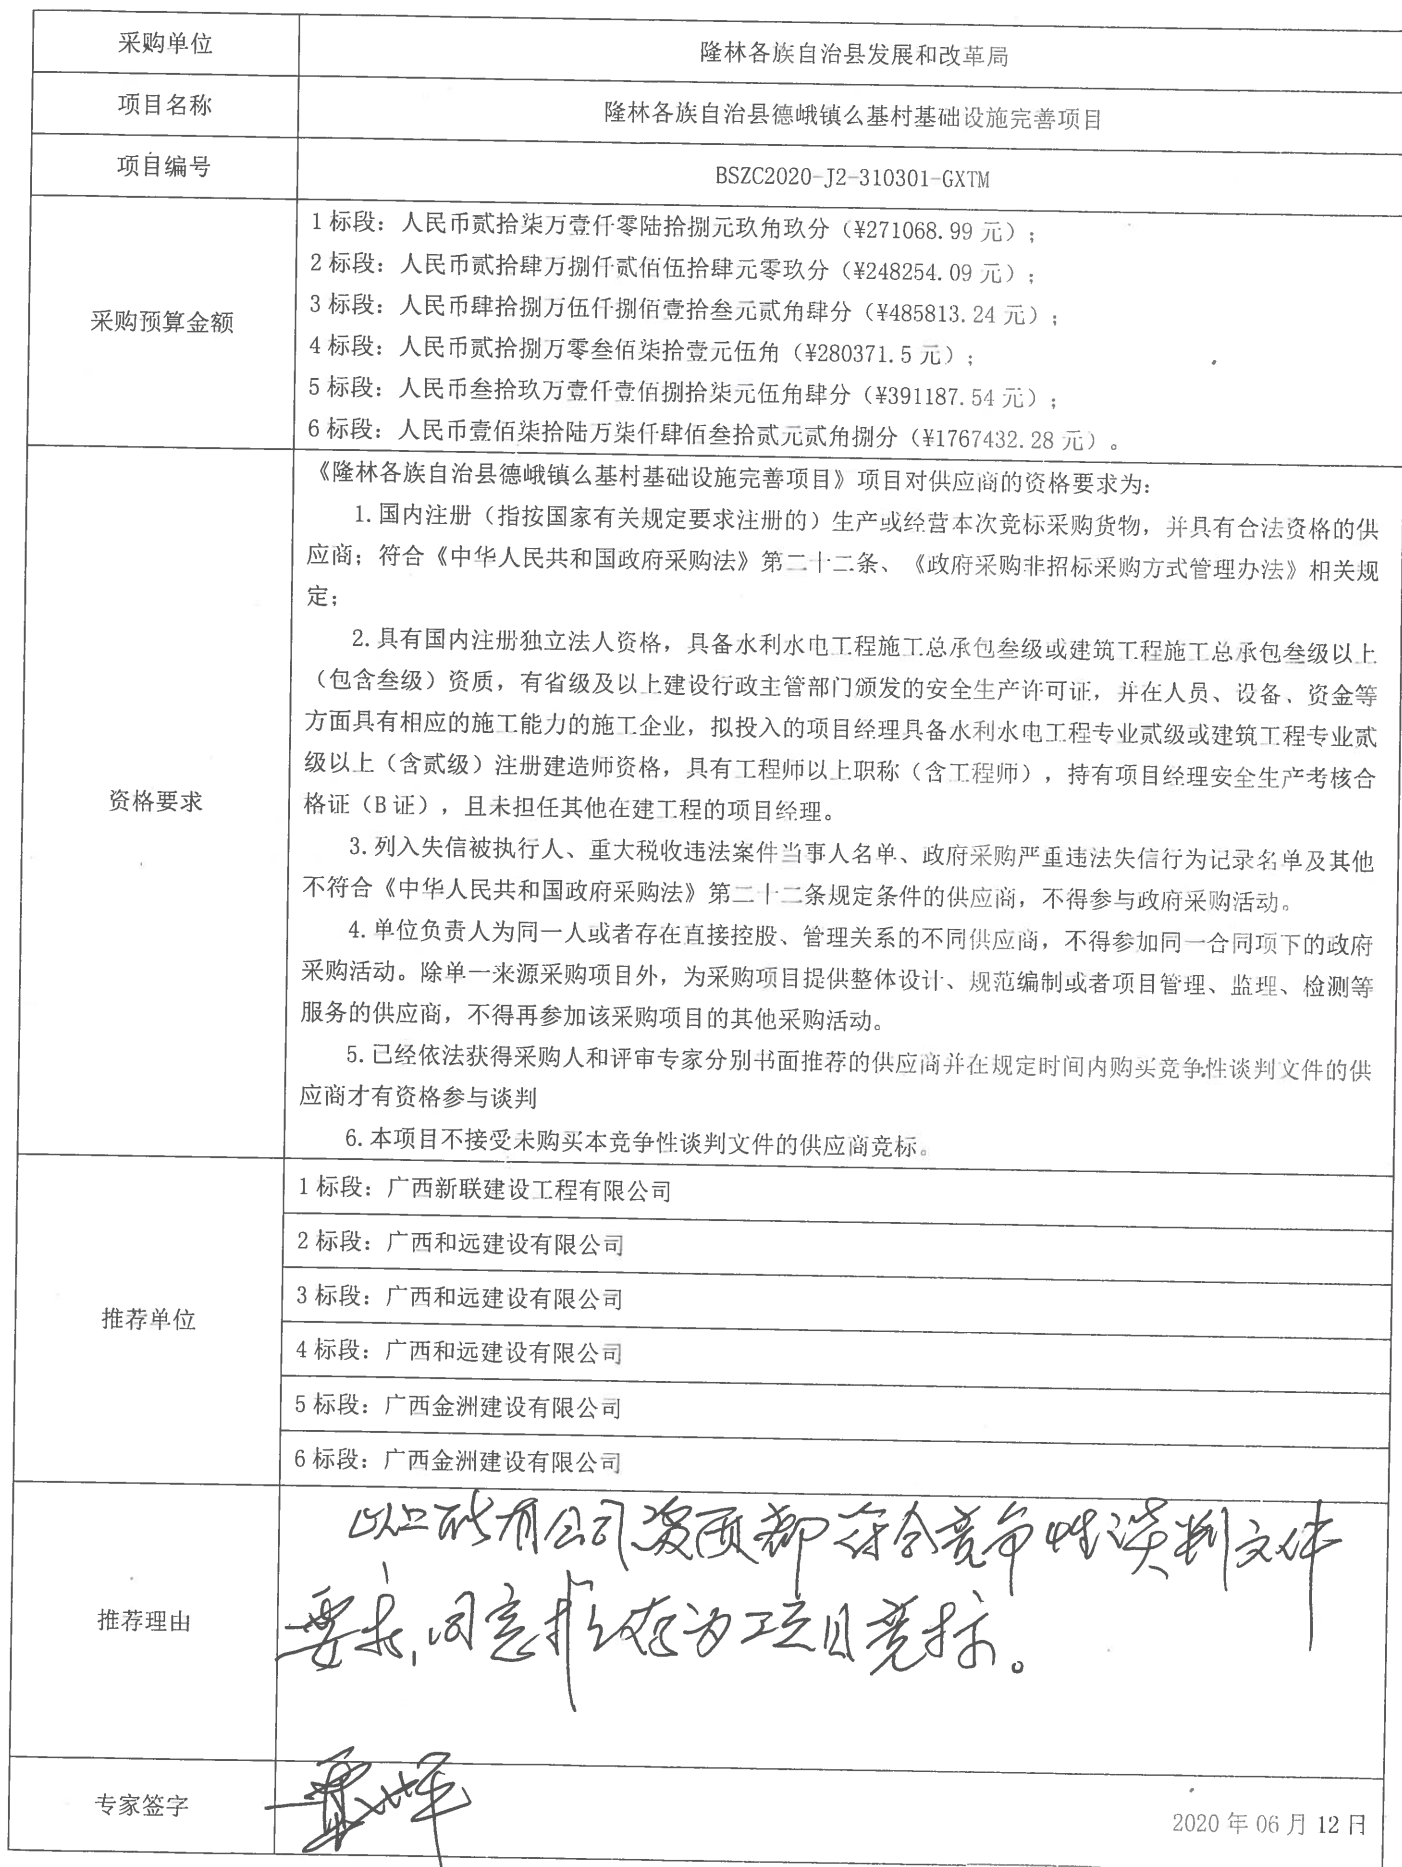 采购单位
隆林各族自治县发展和改革局
项目名称
隆林各族自治县德峨镇么基村基础设施完善项目
项目编号
BSZC2020-J2-310301-GXTM
采购预算金额
1 标段：人民币贰拾柒万壹仟零陆拾捌元玖角玖分（¥271068.99 元）；
2 标段：人民币贰拾肆万捌仟贰佰伍拾肆元零玖分（¥248254.09 元）；
3 标段：人民币肆拾捌万伍仟捌佰壹拾叁元贰角肆分（¥485813.24 元）；
4 标段：人民币贰拾捌万零叁佰柒拾壹元伍角（¥280371.5 元）；
5 标段：人民币叁拾玖万壹仟壹佰捌拾柒元伍角肆分（¥391187.54 元）；
6 标段：人民币壹佰柒拾陆万柒仟肆佰叁拾贰元贰角捌分（¥1767432.28 元）。
资格要求
《隆林各族自治县德峨镇么基村基础设施完善项目》项目对供应商的资格要求为：
1.国内注册（指按国家有关规定要求注册的）生产或经营本次竞标采购货物，并具有合法资格的供
应商；符合《中华人民共和国政府采购法》第二十二条、《政府采购非招标采购方式管理办法》相关规
定；
2.具有国内注册独立法人资格，具备水利水电工程施工总承包叁级或建筑工程施工总承包叁级以上
（包含叁级）资质，有省级及以上建设行政主管部门颁发的安全生产许可证，并在人员、设备、资金等
方面具有相应的施工能力的施工企业，拟投入的项目经理具备水利水电工程专业贰级或建筑工程专业贰
级以上（含贰级）注册建造师资格，具有工程师以上职称（含工程师），持有项目经理安全生产考核合
格证（B 证），且未担任其他在建工程的项目经理。
3.列入失信被执行人、重大税收违法案件当事人名单、政府采购严重违法失信行为记录名单及其他
不符合《中华人民共和国政府采购法》第二十二条规定条件的供应商，不得参与政府采购活动。
4.单位负责人为同一人或者存在直接控股、管理关系的不同供应商，不得参加同一合同项下的政府
采购活动。除单一来源采购项目外，为采购项目提供整体设计、规范编制或者项目管理、监理、检测等
服务的供应商，不得再参加该采购项目的其他采购活动。
5.已经依法获得采购人和评审专家分别书面推荐的供应商并在规定时间内购买竞争性谈判文件的供
应商才有资格参与谈判
6.本项目不接受未购买本竞争性谈判文件的供应商竞标。
推荐单位
1 标段：广西新联建设工程有限公司
2 标段：广西和远建设有限公司
3 标段：广西和远建设有限公司
4 标段：广西和远建设有限公司
5 标段：广西金洲建设有限公司
6 标段：广西金洲建设有限公司
推荐理由
以上所有公司资质都符合竞争性谈判文件
要求，同意推荐为项目竞标。
专家签字
2020 年 06 月 12 日